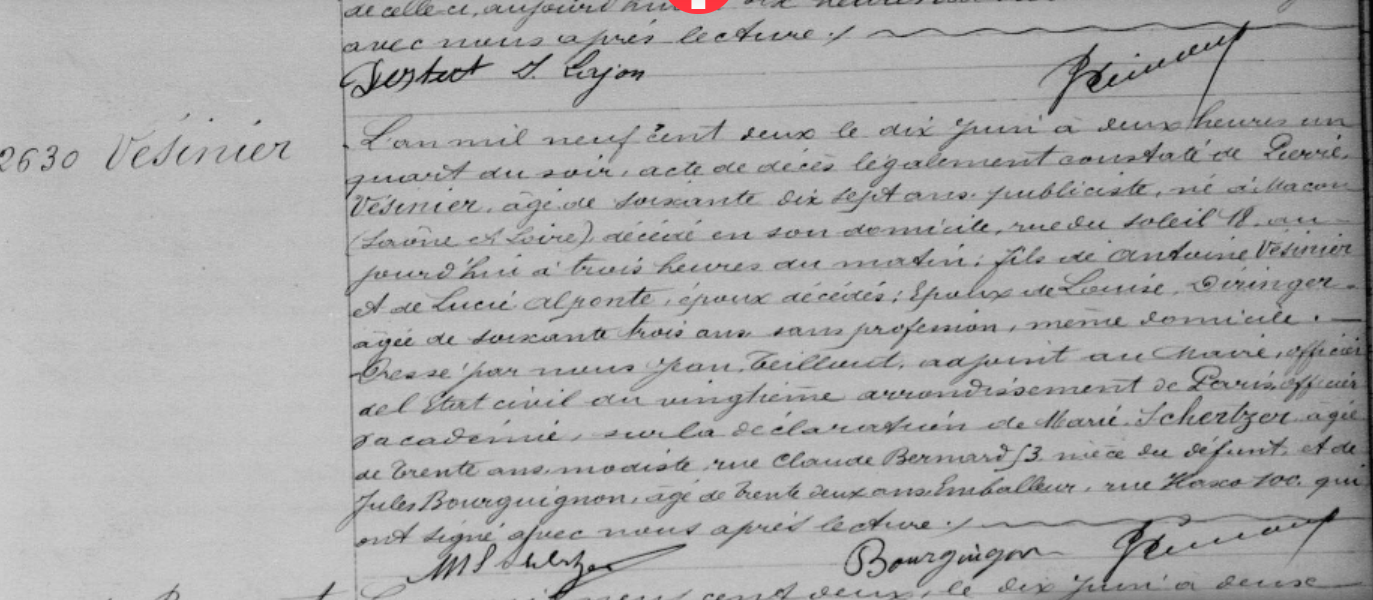 de celle ci, aujourd'hui dix heures
avec nous après lecture ./.
2630 Vésinier
L'an mil neuf cent deux le dix Juin à deux heures un
quart du soir, acte de décès légalement constaté de Pierre,
Vésinier, âgé de soixante dix sept ans, publiciste, né à Macon
(Saône et Loire), décédé en son domicile, rue du soleil 18, au-
jourd'hui à trois heures du matin; fils de Antoine Vésinier
et de Lucie Alponte, époux décédés; Epoux de Louise, Diringer-
âgée de soixante trois ans sans profession, même domicile. —
Dressé par nous Jean, Teillout, adjoint au Maire, officier
de l'Etat civil du vingtième arrondissement de Paris, officier
d'académie, sur la déclaration de Marie, Schertzer âgée
de trente ans, modiste, rue Claude Bernard 53 nièce du défunt, et de
Jules Bourguignon, âgé de trente deux ans Emballeur, rue Haxo 100, qui
ont signé avec nous après lecture ./.
Bourguignon
cent deux, le dix Juin à deux